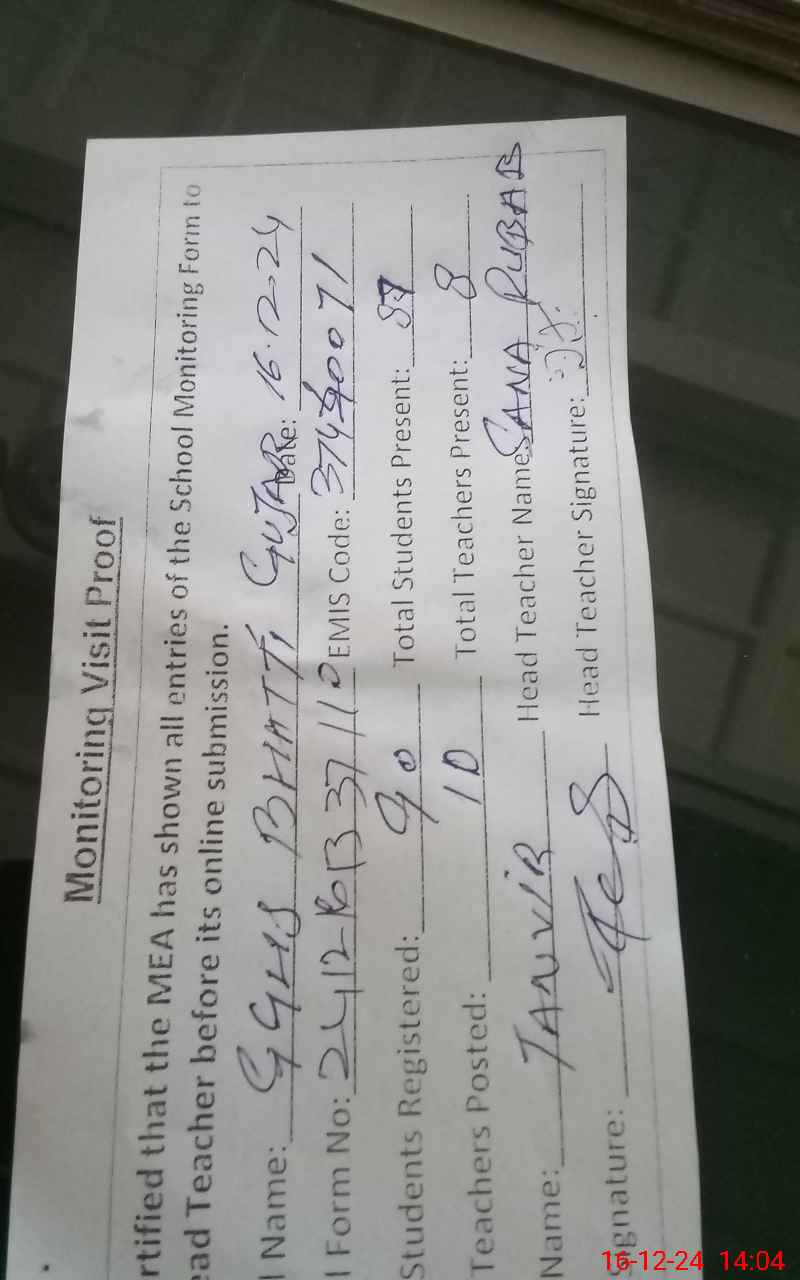 Monitoring Visit Proof
rtified that the MEA has shown all entries of the School Monitoring Form to
ead Teacher before its online submission.
l Name: GGHS BHATTI GUJAR Date: 16.12.24
l Form No: EMIS Code:
Students Registered: 90 Total Students Present: 87
Teachers Posted: 10 Total Teachers Present: 8
Name: TANVIR Head Teacher Name: SANA RUBAB
Signature: Head Teacher Signature:
16-12-24 14:04